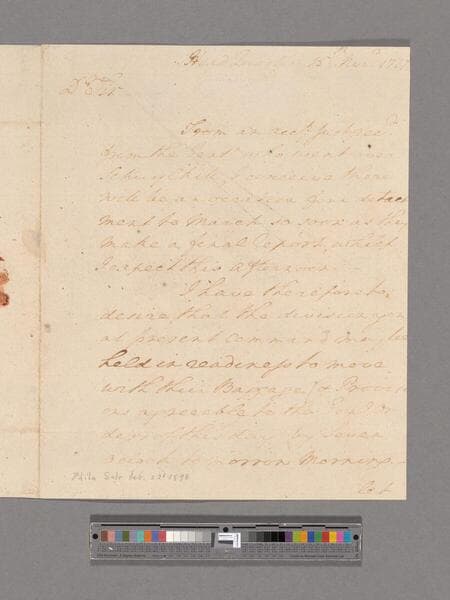 Head Quarters 15th
Dr Sir
From an acct. just recd
from the Gent. who went over
Schuylkill, I conceive there
will be an occasion for a detach
ment to March so soon as they
make a final Report, which
I expect this afternoon.
I have therefore to
desire that the division you
at present command may be
held in readiness to move
with their Baggage & Provisi
ons agreeable to the Genl. Or
ders of this day by Seven
oClock tomorrow Morning.
Phila Sale Feb. 22d 1898